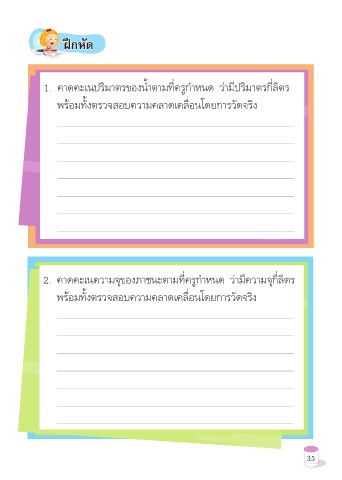 ฝึกหัด
1. คาดคะเนปริมาตรของน้ำตามที่ครูกำหนด ว่ามีปริมาตรกี่ลิตร
พร้อมทั้งตรวจสอบความคลาดเคลื่อนโดยการวัดจริง
2. คาดคะเนความจุของภาชนะตามที่ครูกำหนด ว่ามีความจุกี่ลิตร
พร้อมทั้งตรวจสอบความคลาดเคลื่อนโดยการวัดจริง
35